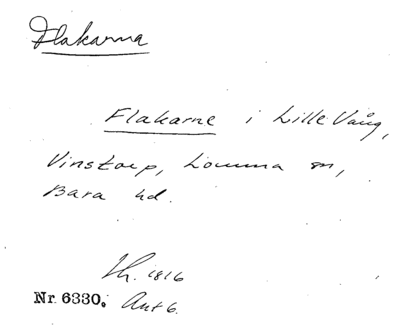 Flakarna
Flakarne i Lille Vång,
Vinstorp, Lomma sn,
Bara hd.
Lh. 1816
Nr. 6330. Akt 6.